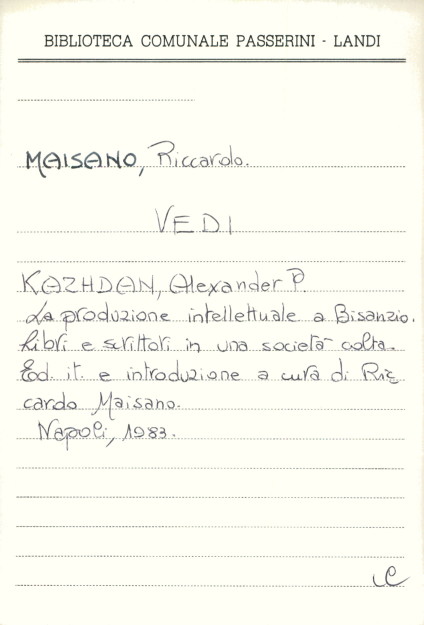 BIBLIOTECA COMUNALE PASSERINI - LANDI
MAISANO, Riccardo.
VEDI
KAZHDAN, Alexander P.
La produzione intellettuale a Bisanzio.
Libri e scrittori in una società colta.
Ed. it. e introduzione a cura di Ric
cardo Maisano.
Napoli, 1983.